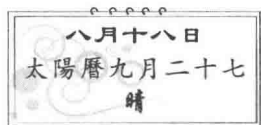 八月十八日
太陽曆九月二十七
晴